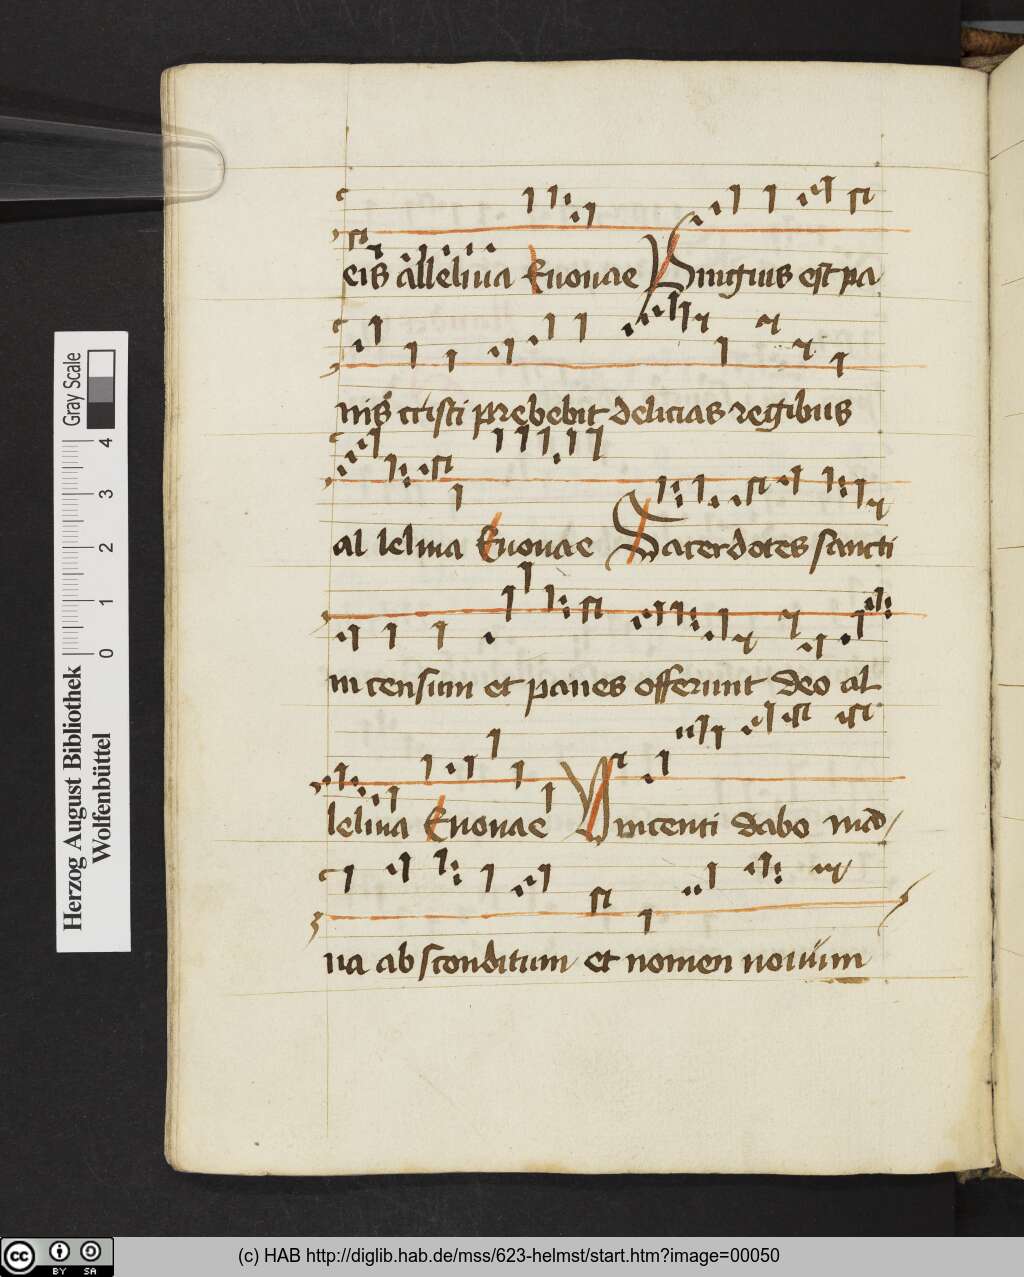 eis alleluia Euouae Pinguis est pa
nis cristi prebebit delicias regibus
al leluia Euouae Sacerdotes sancti
incensum et panes offerunt deo al
leluia Euouae Vincenti dabo man
na absconditum et nomen nouum
Herzog August Bibliothek
Wolfenbüttel
0 1 2 3 4
Gray Scale
cc BY SA
(c) HAB http://diglib.hab.de/mss/623-helmst/start.htm?image=00050